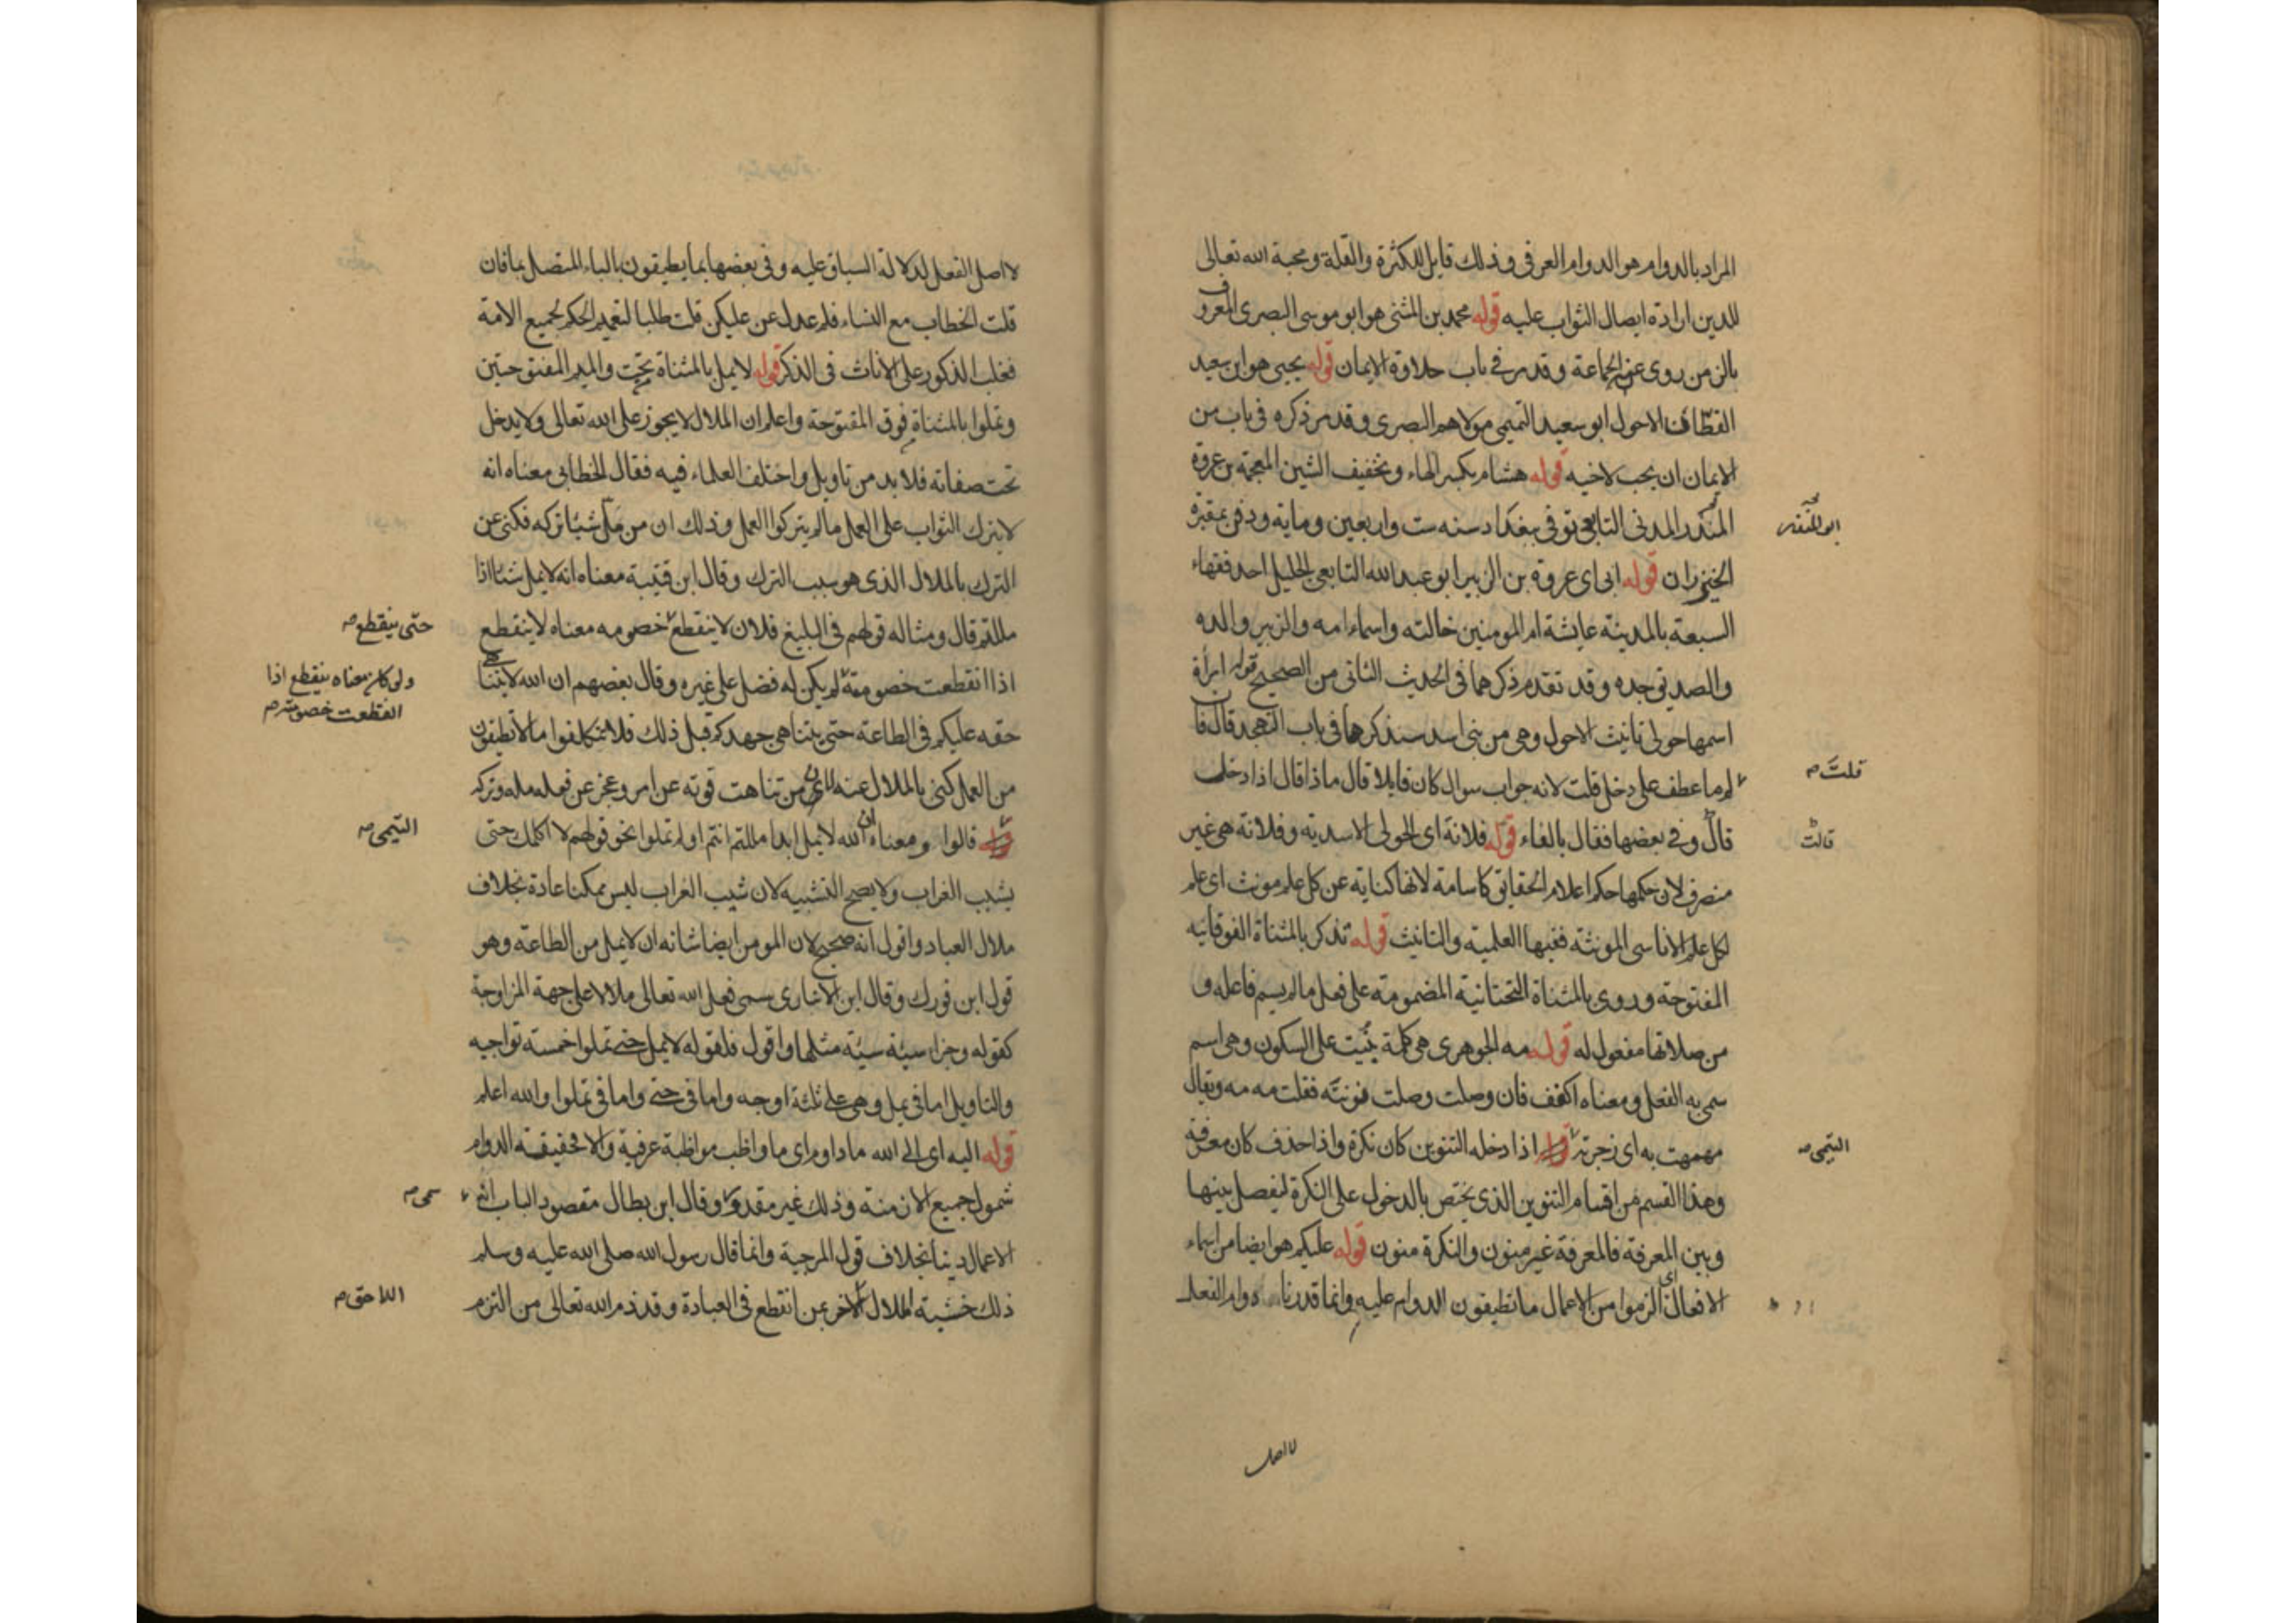 المراد بالدوام هو الدوام العرفي وذلك قابل للكثرة والقلة ومحبة الله تعالى
للدين ارادة ايصال الثواب عليه قوله محمد بن المثنى هو ابو موسى البصرى المعروف
بالزمن روى عنه الجماعة وقد مر في باب حلاوة الايمان قوله يحيى هو ابن سعيد
القطان الاحول ابو سعيد التميمى مولاهم البصرى وقد مر ذكره في باب من
الايمان ان يحب لاخيه قوله هشام بكسر الهاء وتخفيف الشين المعجمة بن عروة
ابو المنذر
المدنى التابعى توفى ببغداد سنه ست واربعين وماية ودفن بمقبرة
الخيزران قوله ابى اى عروة بن الزبير ابو عبد الله التابعي الجليل احد فقهاء
السبعة بالمدينة عايشة ام المومنين خالته واسماء امه والزبير والده
والصديق جده وقد تقدم ذكرهما فى الحديث الثانى من الصحيح قوله امرأة
اسمها حولى تانيث الاحول وهى من بنى اسد سنذكرها فى باب التهجد قال فان
قلت
لم ما عطف على دخل قلت لانه جواب سوال كان قايلا قال ماذا قال اذا دخل
قالت
قال وفي بعضها فقال بالفاء قوله فلانة اى الحولى الاسديه وفلانة هى غير
منصرف لان حكمها حكم اعلام الحقايق كاسامة لانها كناية عن كل علم مونث اى علم
لكل علم الاناسى المونثه ففيها العلمية والتانيث قوله تذكر بالمثناة الفوقانيه
المفتوحة وروى بالمثناة التحتانية المضمومة على فعل ما لم يسم فاعله و
من صلاتها مفعول له قوله مه الجوهرى هى كلمة بنيت على السكون وهى اسم
سمى به الفعل ومعناه اكفف فان وصلت وصلت فنونته فقلت مه مه ويقال
مهمهت به اى زجرته اذا دخله التنوين كان نكرة واذا حذف كان معرفة
التيمى
وهذا القسم من اقسام التنوين الذى يختص بالدخول على النكرة ليفصل بينها
وبين المعرفة فالمعرفة غير منون والنكرة منون قوله عليكم هو ايضا من اسماء
الافعال اى الزموا من الاعمال ما تطيقون الدوام عليه وانما قدرنا دوام الفعل
لا اصل
لا اصل الفعل لدلالة السياق عليه وفى بعضها بما يطيقون بالباء المتصل بما فان
قلت الخطاب مع النساء فلم عدل عن عليكن قلت طلبا لتعميم الحكم لجميع الامة
فغلب الذكور على الاناث فى الذكر قوله لا يمل بالمثناة تحت والميم المفتوحتين
وتملوا بالمثناة فوق المفتوحة واعلم ان الملال لا يجوز على الله تعالى ولا يدخل
تحت صفاته فلا بد من تاويل واختلف العلماء فيه فقال الخطابى معناه انه
لا يترك الثواب على العمل ما لم يتركوا العمل وذلك ان من مل شيئا تركه فكنى عن
الترك بالملال الذى هو سبب الترك وقال ابن قتيبة معناه انه لا يمل شيئا اذا
مللتم قال ومثاله قولهم فى البليغ فلان لا ينقطع خصومه معناه لا ينقطع
حتى ينقطع
اذا انقطعت خصومته لم يكن له فضل على غيره وقال بعضهم ان الله لا يتناهى
ولو كان معناه ينقطع اذا
انقطعت خصومته
حقه عليكم فى الطاعة حتى يتناهى جهدكم قبل ذلك فلا تتكلفوا ما لا تطيقون
من العمل كنى بالملال عنه لان من تناهت قوته عن امر وعجز عن فعله مله وتركه
قالوا ومعناه ان الله لا يمل ابدا مللتم انتم او لم تملوا نحو قولهم لا اكلمك حتى
التيمى
يشيب الغراب ولا يصح التشبيه لان شيب الغراب ليس ممكنا عادة بخلاف
ملال العباد واقول انه صحيح لان المومن ايضا شانه ان لا يمل من الطاعة وهو
قول ابن فورك وقال ابن الانبارى سمى فعل الله تعالى ملالا على جهة المزاوجة
كقوله وجزاء سيئة سيئة مثلها واقول فلقوله لا يمل حتى تملوا خمسة تواجيه
والتاويل اما فى يمل وهى على ثلثة اوجه واما فى حتى واما فى تملوا والله اعلم
قوله اليه اى الى الله ما داوم اى ما واظب مواظبة عرفية والا فحقيقة الدوام
شمول جميع الازمنة وذلك غير مقدور وقال ابن بطال مقصود الباب انه
سمى
الاعمال دينا بخلاف قول المرجية وانما قال رسول الله صلى الله عليه وسلم
ذلك خشية الملال الاخر عن انقطع فى العبادة وقد ذم الله تعالى من التزم
اللاحق